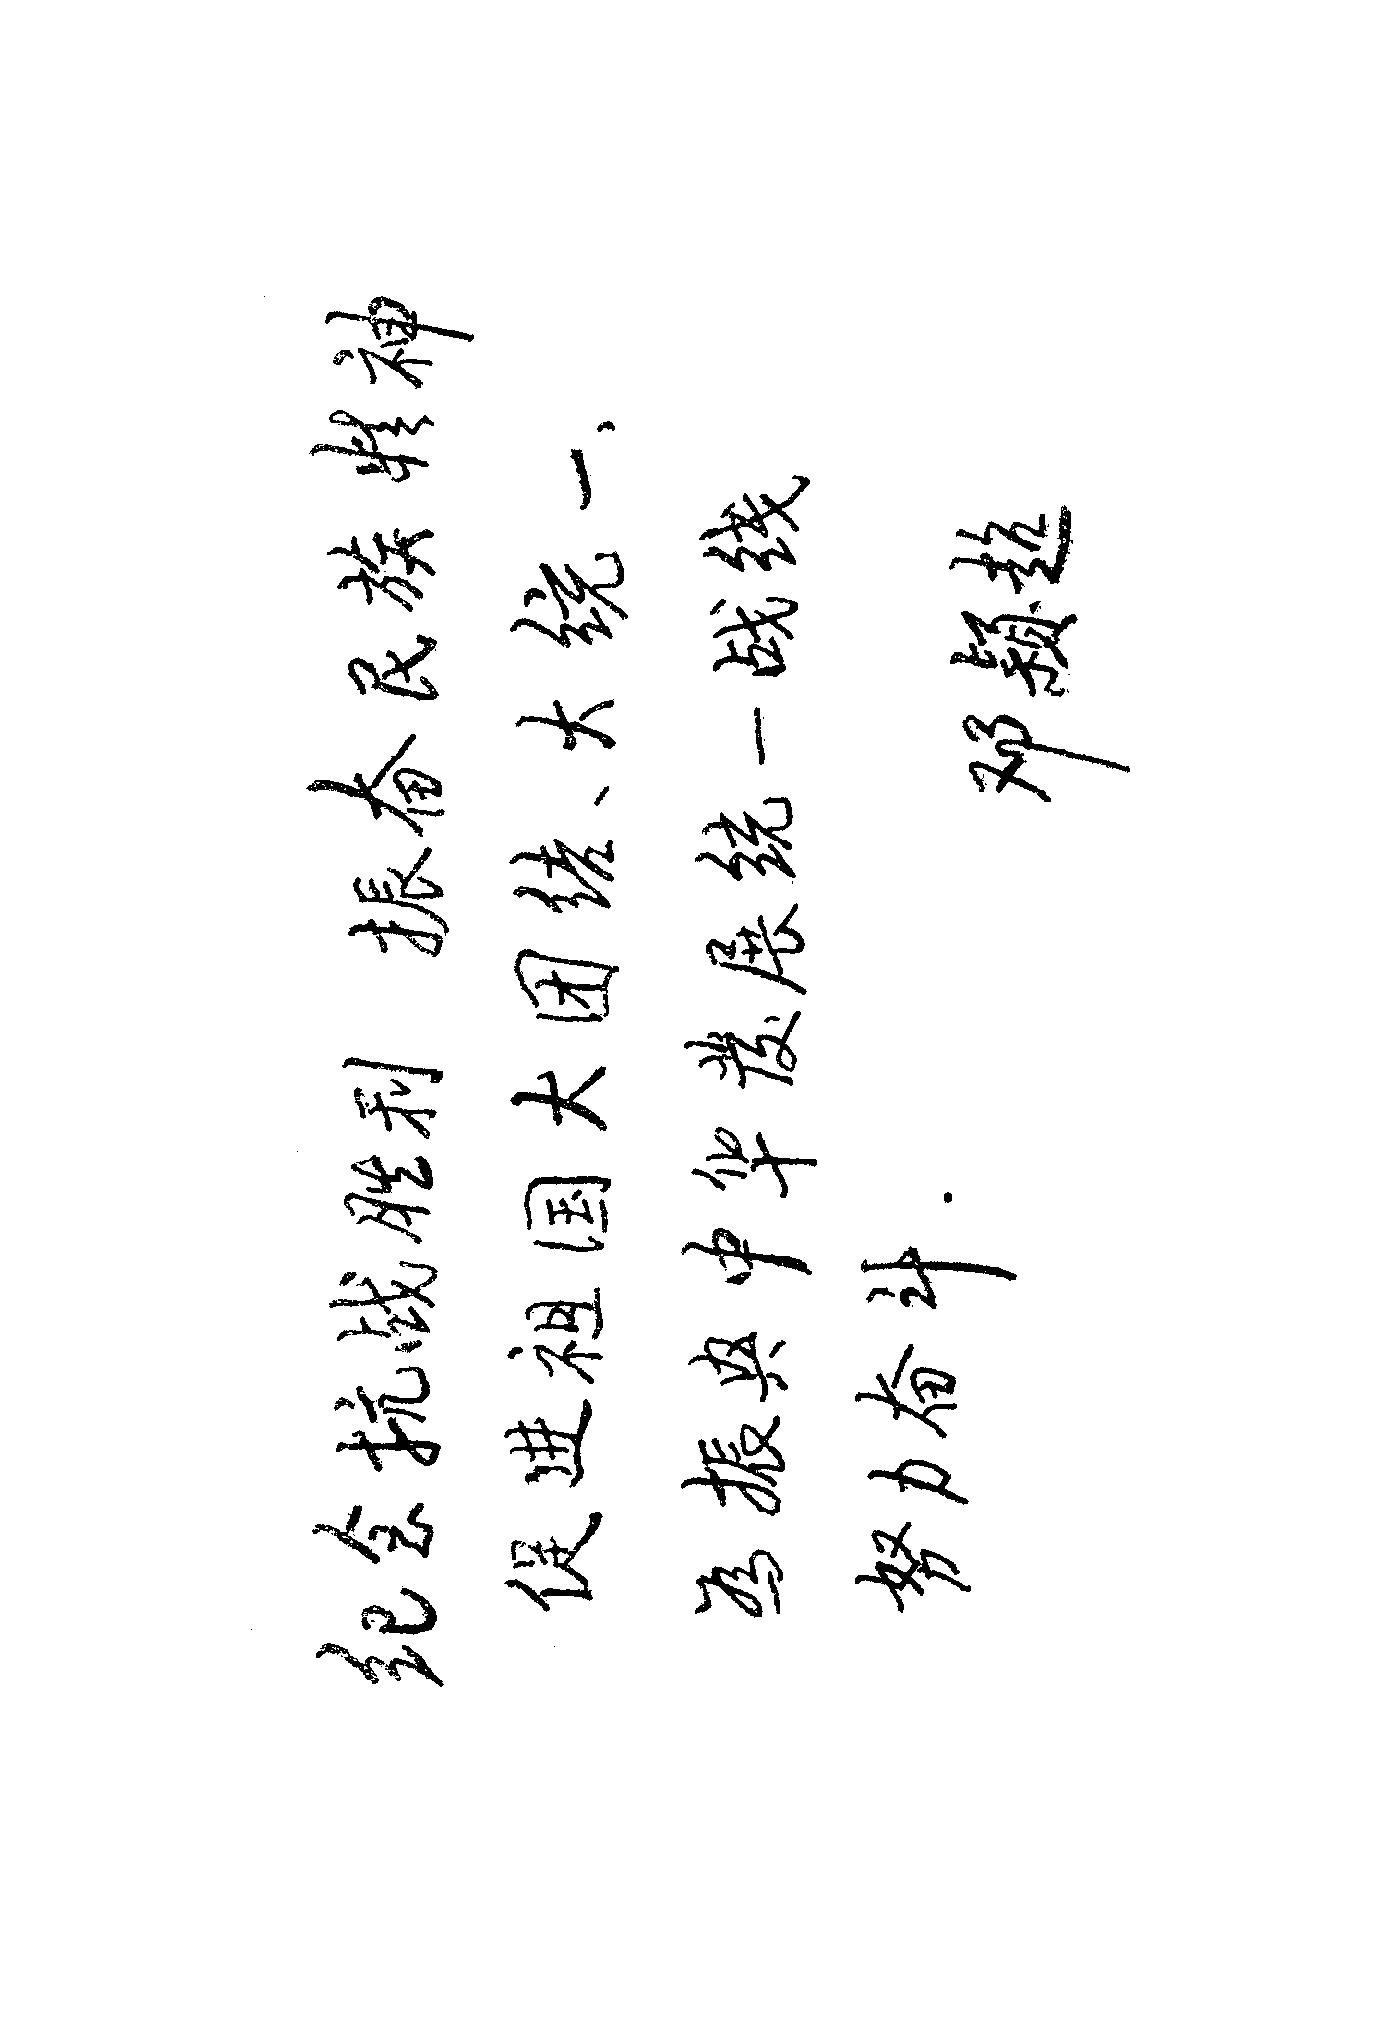 纪念抗战胜利 振奋民族精神
促进祖国大团结、大统一.
为振兴中华发展统一战线
努力奋斗.
邓颖超